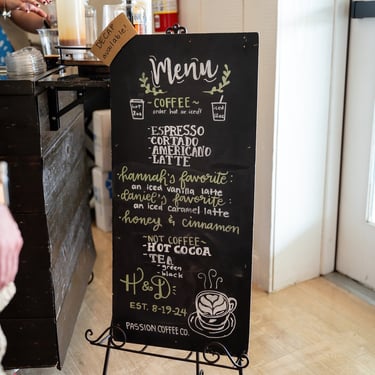 DECAF
available!
Menu
- COFFEE -
order hot or iced!
-ESPRESSO
-CORTADO
-AMERICANO
-LATTE
hannah's favorite:
an iced vanilla latte
daniel's favorite:
an iced caramel latte
-honey & cinnamon
-NOT COFFEE-
-HOT COCOA
-TEA
-green
-black
H&D:
EST. 8-19-24
PASSION COFFEE CO.